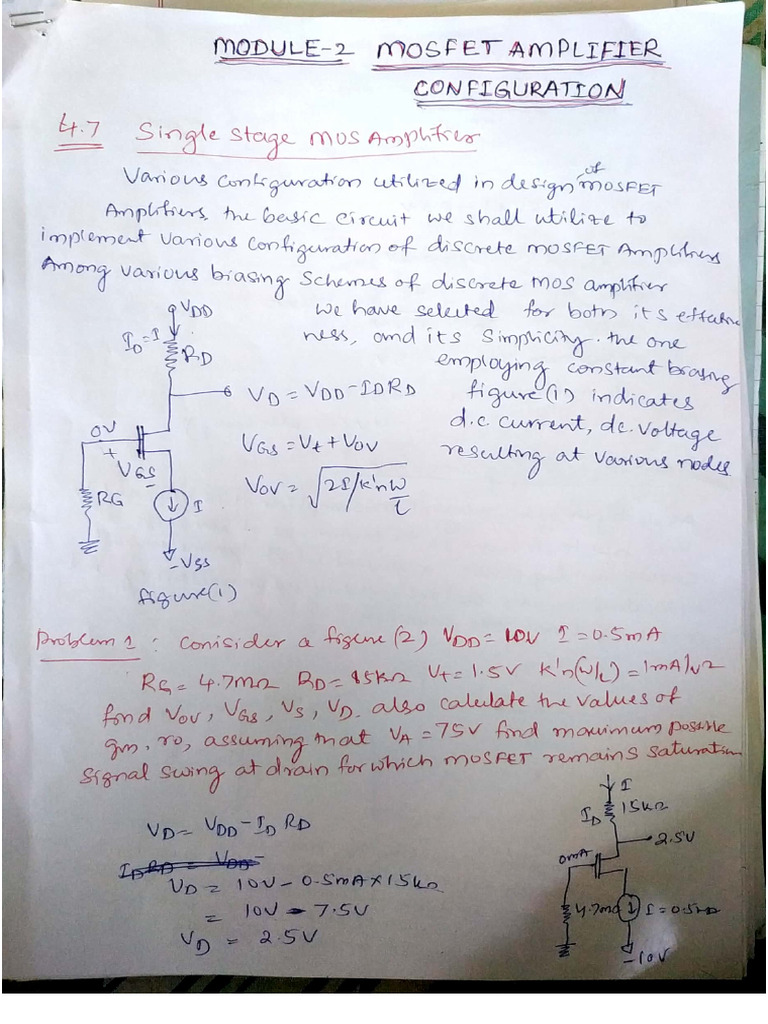 MODULE-2 MOSFET AMPLIFIER
CONFIGURATION
4.7 Single Stage MOS Amplifier
Various configuration utilized in design of MOSFET
Amplifiers, the basic circuit we shall utilize to
implement various configuration of discrete MOSFET Amplifiers
Among various biasing schemes of discrete MOS amplifier
we have selected for both its effective
ness, and its simplicity. the one
employing constant biasing
figure (1) indicates
d.c. current, dc. voltage
resulting at various nodes
VDD
ID=I
RD
VD = VDD - IDRD
0V
+
VGS
-
VGS = Vt + VOV
VOV = √2I/k'n W/L
RG
I
-VSS
figure(1)
Problem 1 : Conisider a figure (2) VDD = 10V I = 0.5mA
RG = 4.7MΩ RD = 15kΩ Vt = 1.5V k'n(W/L) = 1mA/V2
find VOV, VGS, VS, VD. also calculate the values of
gm, ro, assuming that VA = 75V find maximum possible
signal swing at drain for which MOSFET remains saturation
VD = VDD - ID RD
VD = 10V - 0.5mA X 15kΩ
= 10V - 7.5V
VD = 2.5V
I
ID
15kΩ
2.5V
0mA
4.7mΩ
I = 0.5mA
-10V